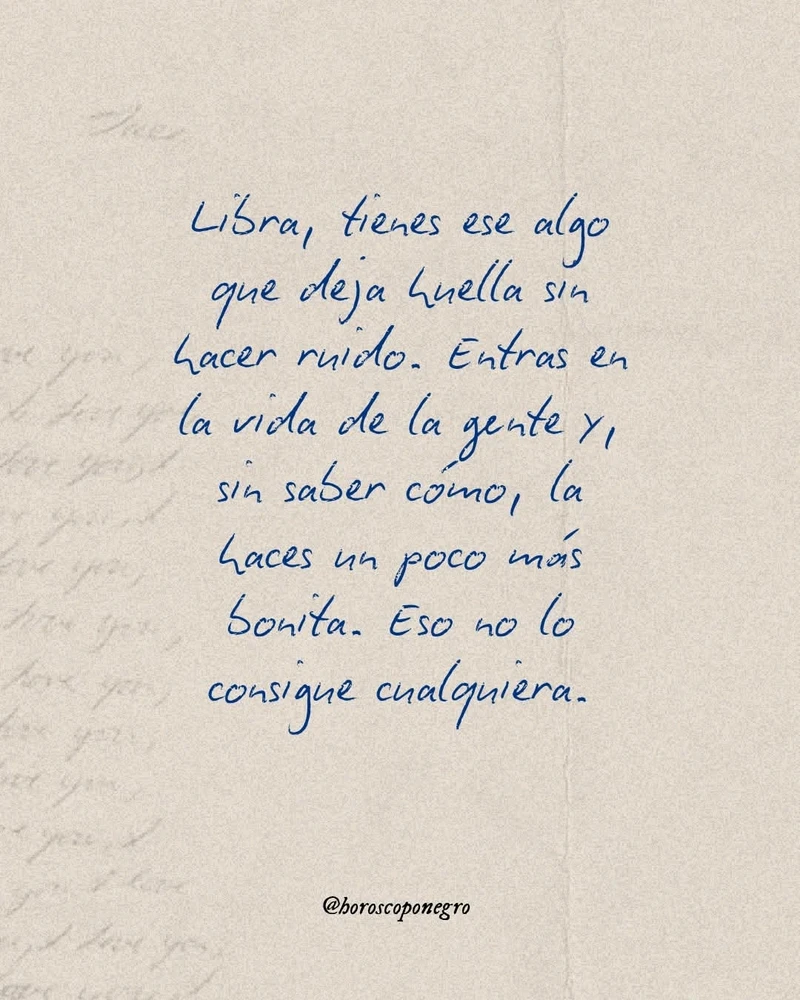 Libra, tienes ese algo
que deja huella sin
hacer ruido. Entras en
la vida de la gente y,
sin saber cómo, la
haces un poco más
bonita. Eso no lo
consigue cualquiera.
@horoscoponegro